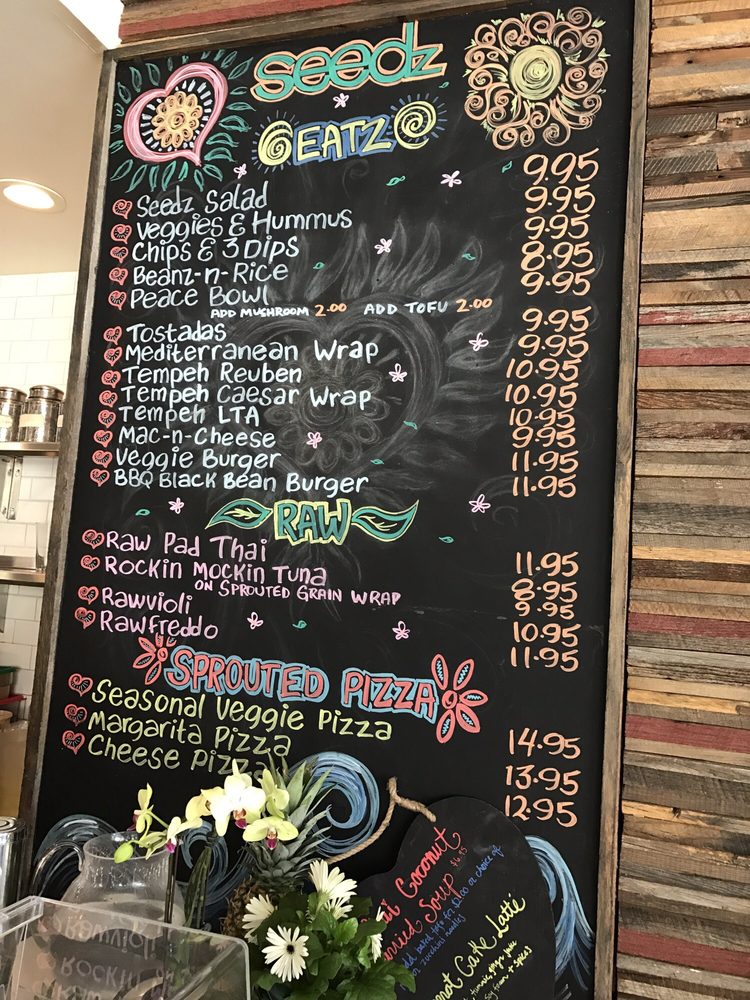 seedz
EATZ
Seedz Salad 9.95
Veggies & Hummus 9.95
Chips & 3 Dips 9.95
Beanz-n-Rice 8.95
Peace Bowl 9.95
ADD MUSHROOM 2.00 ADD TOFU 2.00
Tostadas 9.95
Mediterranean Wrap 9.95
Tempeh Reuben 10.95
Tempeh Caesar Wrap 10.95
Tempeh LTA 10.95
Mac-n-Cheese 9.95
Veggie Burger 11.95
BBQ Black Bean Burger 11.95
RAW
Raw Pad Thai 11.95
Rockin Mockin Tuna 8.95
ON SPROUTED GRAIN WRAP 9.95
Rawvioli 10.95
Rawfreddo 11.95
SPROUTED PIZZA
Seasonal Veggie Pizza 14.95
Margarita Pizza 13.95
Cheese Pizza 12.95
Coconut
Soup $6.95
add baked tofu for $2.00 or choice of
zucchini noodles
Cake Latte